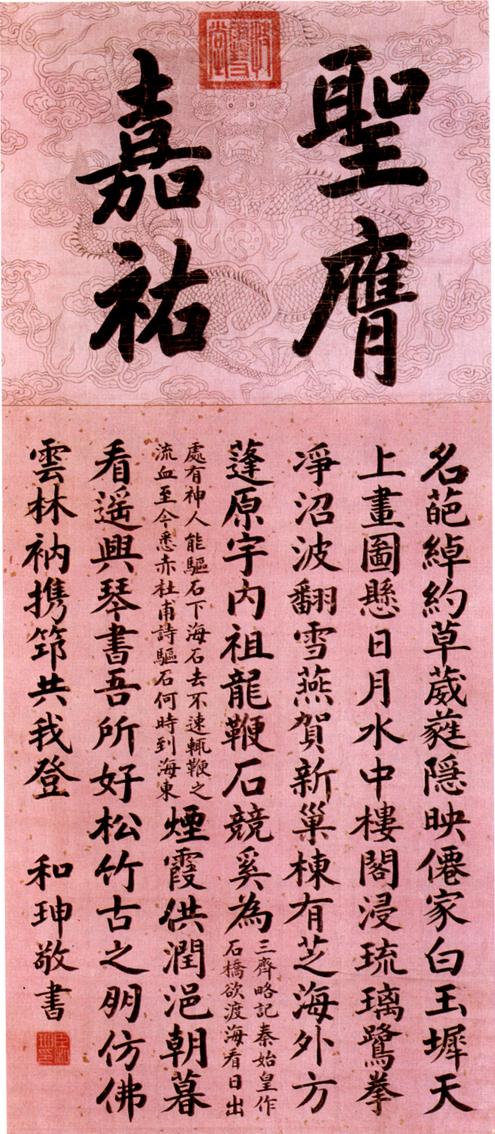 聖膺
嘉祐
名葩綽約草葳蕤隱映僊家白玉墀天
上畫圖懸日月水中樓閣浸琉璃鷺拳
凈沼波翻雪燕賀新巢棟有芝海外方
蓬原宇内祖龍鞭石競奚為
三齊略記秦始皇作
石橋欲渡海看日出
處有神人能驅石下海石去不速輒鞭之
流血至今悉赤杜甫詩驅石何時到海東
煙霞供潤浥朝暮
看遥興琴書吾所好松竹古之朋仿佛
雲林衲携筇共我登 和珅敬書